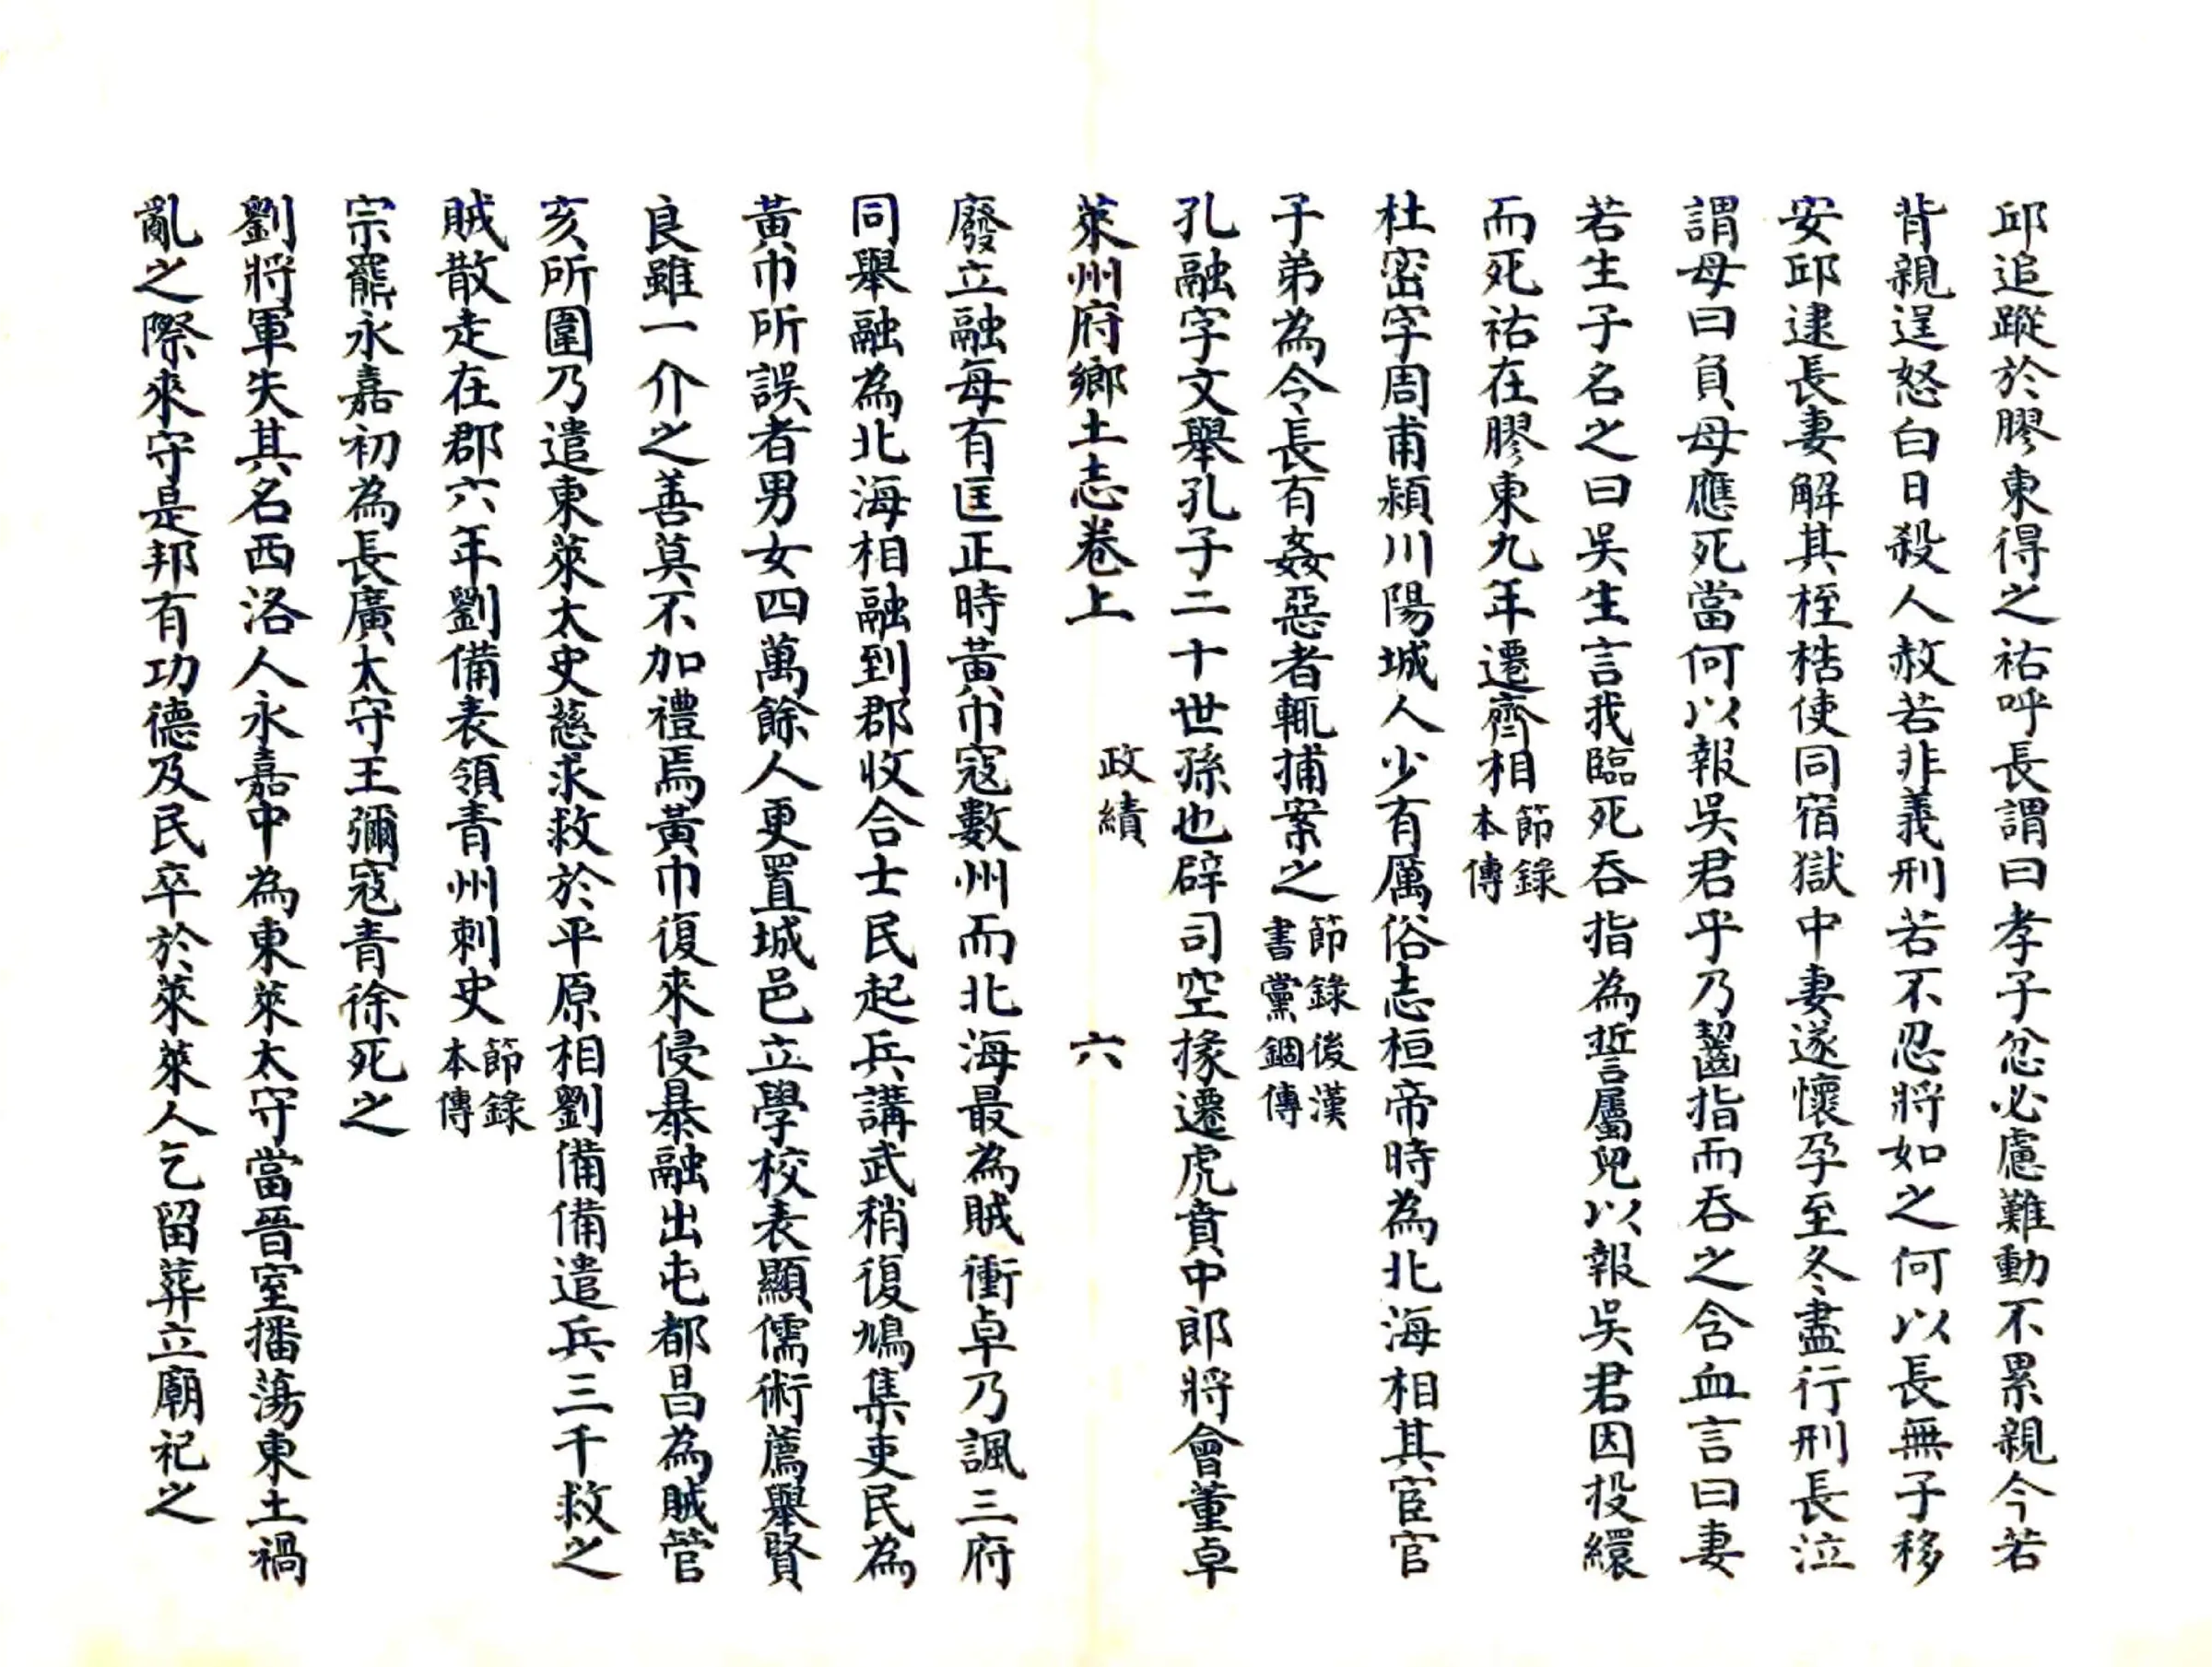 邱追蹤於膠東得之祐呼長謂曰孝子忿必慮難動不累親今若
背親逞怒白日殺人赦若非義刑若不忍將如之何以長無子移
安邱逮長妻解其桎梏使同宿獄中妻遂懷孕至冬盡行刑長泣
謂母曰負母應死當何以報吳君乎乃齧指而吞之含血言曰妻
若生子名之曰吳生言我臨死吞指為誓屬兒以報吳君因投繯
而死祐在膠東九年遷齊相節錄本傳
杜密字周甫潁川陽城人少有厲俗志桓帝時為北海相其宦官
子弟為令長有姦惡者輒捕案之節錄後漢書黨錮傳
孔融字文舉孔子二十世孫也辟司空掾遷虎賁中郎將會董卓
萊州府鄉土志卷上 政績 六
廢立融每有匡正時黃巾寇數州而北海最為賊衝卓乃諷三府
同舉融為北海相融到郡收合士民起兵講武稍復鳩集吏民為
黃巾所誤者男女四萬餘人更置城邑立學校表顯儒術薦舉賢
良雖一介之善莫不加禮焉黃巾復來侵暴融出屯都昌為賊管
亥所圍乃遣東萊太史慈求救於平原相劉備備遣兵三千救之
賊散走在郡六年劉備表領青州刺史節錄本傳
宗羆永嘉初為長廣太守王彌寇青徐死之
劉將軍失其名西洛人永嘉中為東萊太守當晉室播蕩東土禍
亂之際來守是邦有功德及民卒於萊萊人乞留葬立廟祀之